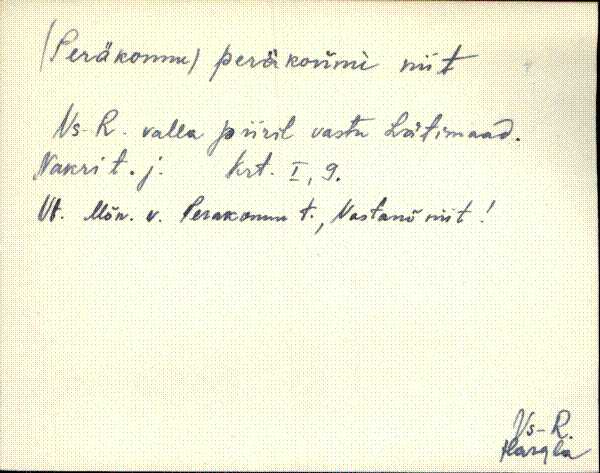 (Peräkonnu) peräkonnu niit
Vs-R. valla piiril vastu Lätimaad.
Nakri t. j. Krt. I, 9.
Vt. Mõn. v. Perakonnu t., Vastanõ niit!
Vs-R.
Hargla